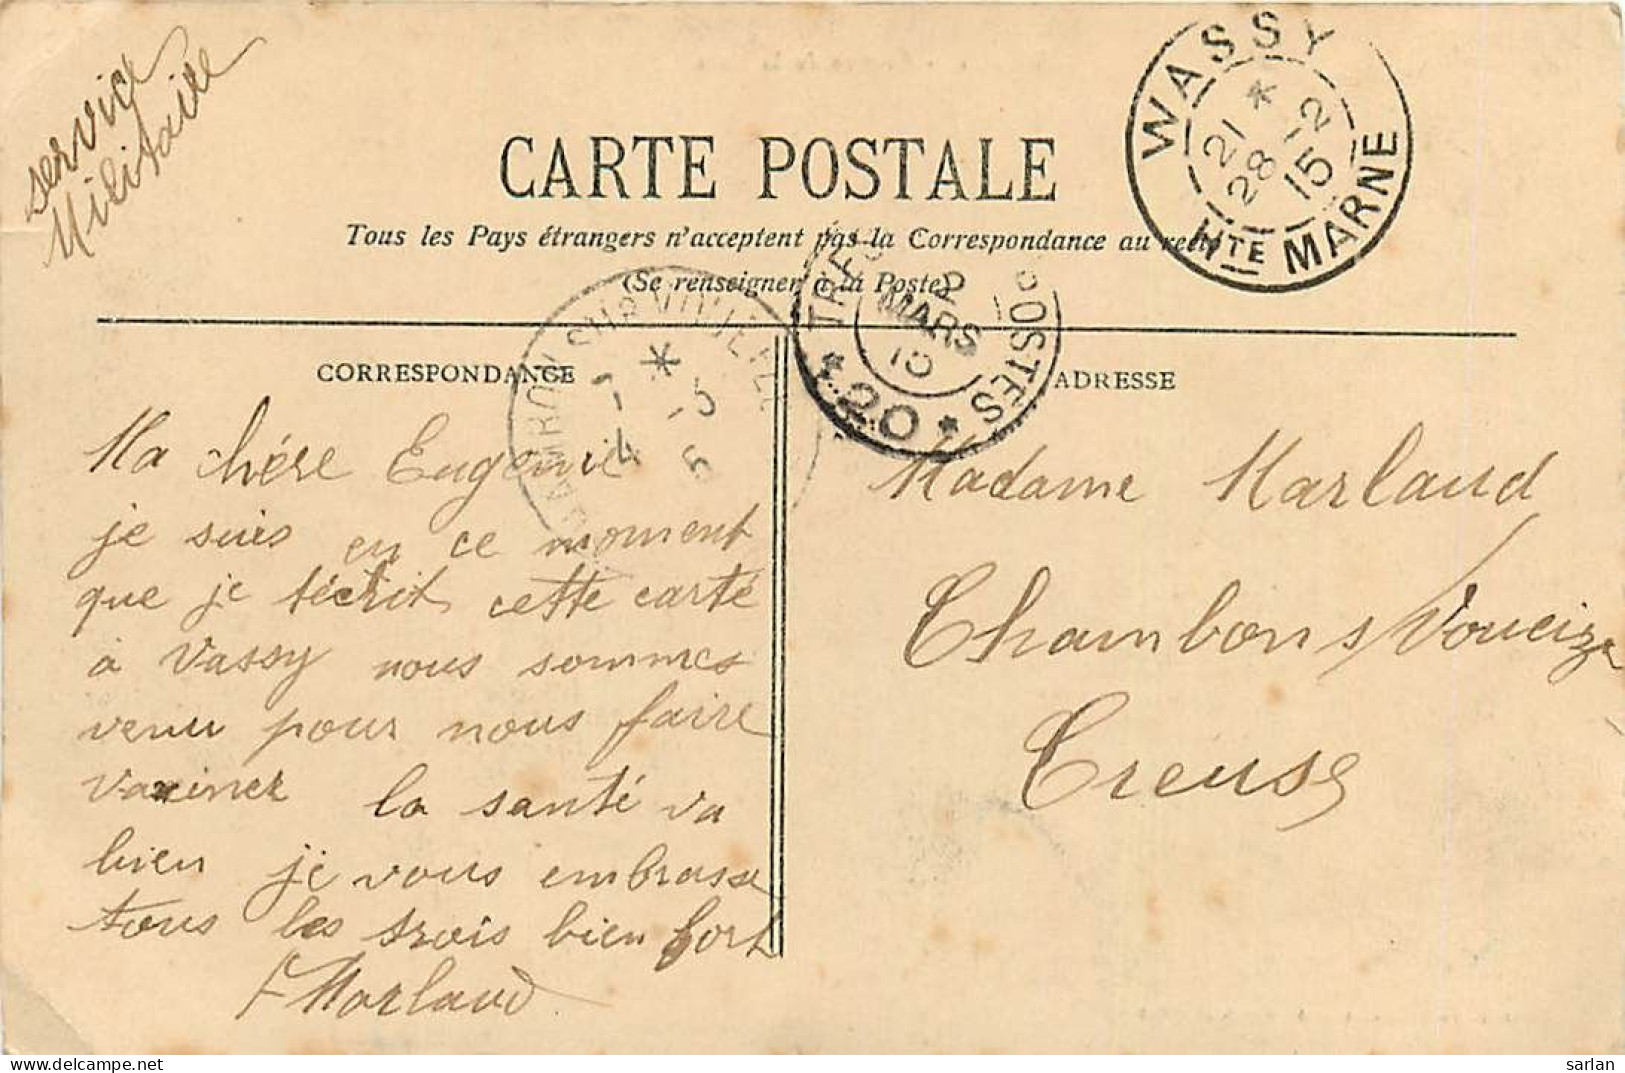 service
Militaire
CARTE POSTALE
Tous les Pays étrangers n'acceptent pas la Correspondance au recto
(Se renseigner à la Poste)
WASSY
21 *
28 -2
15
HTE MARNE
TRESOR
POSTES
2
MARS
15
* 20 *
SUR VOUEIZE
CORRESPONDANCE
ADRESSE
Ma chére Eugenie
je suis en ce moment
que je técrit cette carte
à Vassy nous sommes
venu pour nous faire
vaxiner la santé va
bien je vous embrasse
tous les trois bien fort
F Marlaud
Madame Marlaud
Chambon s/ Voueize
Creuse
sarlan